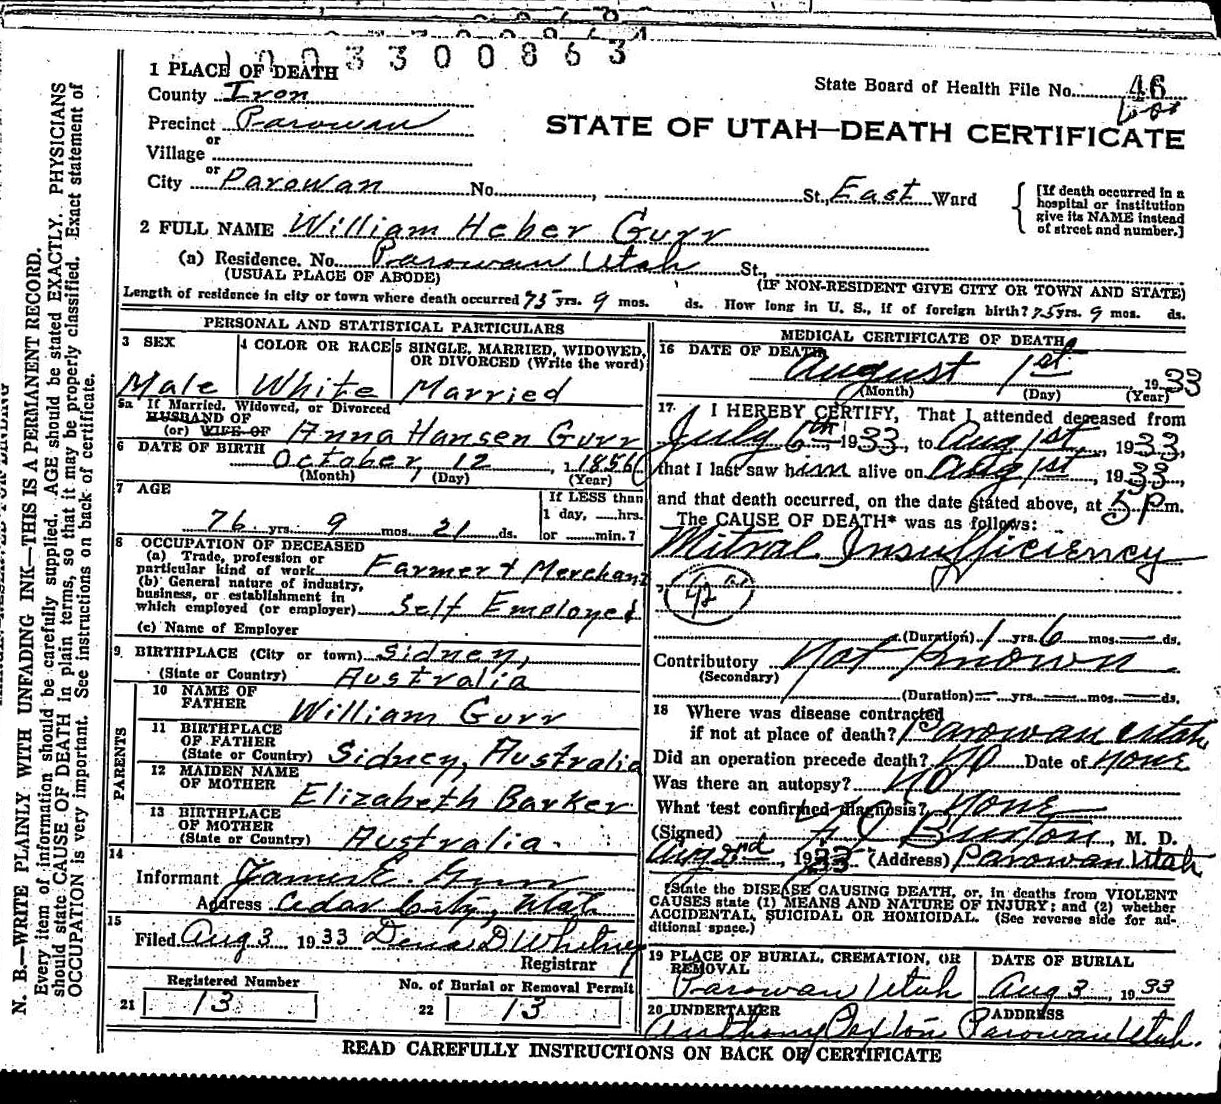 1003300863
1 PLACE OF DEATH
State Board of Health File No. 46
County Iron
Precinct Parowan
STATE OF UTAH—DEATH CERTIFICATE
or
Village
or
City Parowan No. , St., East Ward
[If death occurred in a
hospital or institution
give its NAME instead
of street and number.]
2 FULL NAME William Heber Gurr
(a) Residence. No. Parowan Utah St.,
(USUAL PLACE OF ABODE) (IF NON-RESIDENT GIVE CITY OR TOWN AND STATE)
Length of residence in city or town where death occurred 75 yrs. 9 mos. ds. How long in U. S., if of foreign birth? 75 yrs. 9 mos. ds.
PERSONAL AND STATISTICAL PARTICULARS
3 SEX
Male
4 COLOR OR RACE
White
5 SINGLE, MARRIED, WIDOWED,
OR DIVORCED (Write the word)
Married
5a If Married, Widowed, or Divorced
HUSBAND OF
(or) WIFE OF Anna Hansen Gurr
6 DATE OF BIRTH October 12, 1856
(Month) (Day) (Year)
7 AGE
If LESS than
1 day, hrs.
or min.?
76 yrs. 9 mos. 21 ds.
8 OCCUPATION OF DECEASED
(a) Trade, profession or
particular kind of work Farmer & Merchant
(b) General nature of industry,
business, or establishment in
which employed (or employer) Self Employed
(c) Name of Employer
9 BIRTHPLACE (City or town) Sidney,
(State or Country) Australia
PARENTS
10 NAME OF
FATHER William Gurr
11 BIRTHPLACE
OF FATHER
(State or Country) Sidney, Australia
12 MAIDEN NAME
OF MOTHER Elizabeth Barker
13 BIRTHPLACE
OF MOTHER
(State or Country) Australia.
14
Informant James E. Gurr
Address Cedar City, Utah
15
Filed Aug 3 1933 D Whitney
Registrar
Registered Number
21 13
No. of Burial or Removal Permit
22 13
MEDICAL CERTIFICATE OF DEATH
16 DATE OF DEATH
August 1st, 1933
(Month) (Day) (Year)
17. I HEREBY CERTIFY, That I attended deceased from
July 6th, 1933, to Aug 1st, 1933,
that I last saw him alive on Aug 1st, 1933,
and that death occurred, on the date stated above, at 5 P m.
The CAUSE OF DEATH* was as follows:
Mitral Insufficiency
(Duration) 1 yrs. 6 mos. ds.
Contributory Not Known
(Secondary)
(Duration) yrs. mos. ds.
18 Where was disease contracted
if not at place of death? Parowan Utah
Did an operation precede death? No Date of None
Was there an autopsy? No
What test confirmed diagnosis? None
(Signed) Burton, M. D.
Aug 2nd, 1933 (Address) Parowan Utah
*State the DISEASE CAUSING DEATH, or, in deaths from VIOLENT
CAUSES state (1) MEANS AND NATURE OF INJURY; and (2) whether
ACCIDENTAL, SUICIDAL OR HOMICIDAL. (See reverse side for ad-
ditional space.)
19 PLACE OF BURIAL, CREMATION, OR
REMOVAL
Parowan Utah
DATE OF BURIAL
Aug 3, 1933
20 UNDERTAKER
Anthony Paxton
ADDRESS
Parowan Utah.
READ CAREFULLY INSTRUCTIONS ON BACK OF CERTIFICATE
N. B.—WRITE PLAINLY WITH UNFADING INK—THIS IS A PERMANENT RECORD.
Every item of information should be carefully supplied. AGE should be stated EXACTLY. PHYSICIANS
should state CAUSE OF DEATH in plain terms, so that it may be properly classified. Exact statement of
OCCUPATION is very important. See instructions on back of certificate.